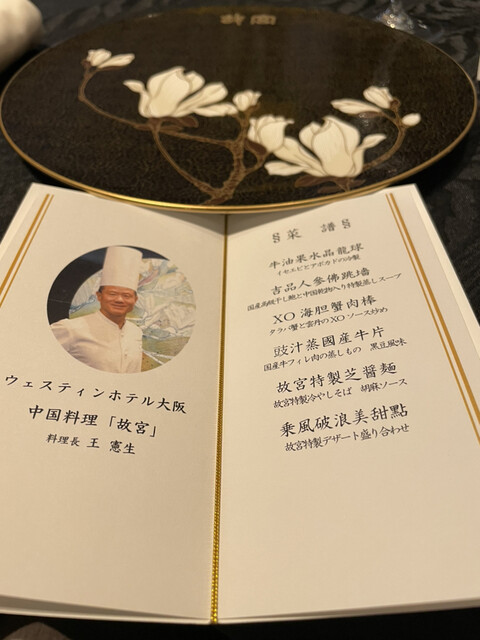 故宮
ウェスティンホテル大阪
中国料理「故宮」
料理長 王 憲生
§ 菜 譜 §
牛油果水晶龍球
イセエビとアボカドの冷製
古品人參佛跳墻
国産高級干し鮑と中国乾物入り特製蒸しスープ
XO 海胆蟹肉棒
タラバ蟹と雲丹のXOソース炒め
豉汁蒸國産牛片
国産牛フィレ肉の蒸しもの 黒豆風味
故宮特製芝醤麺
故宮特製冷やしそば 胡麻ソース
乘風破浪美甜點
故宮特製デザート盛り合わせ